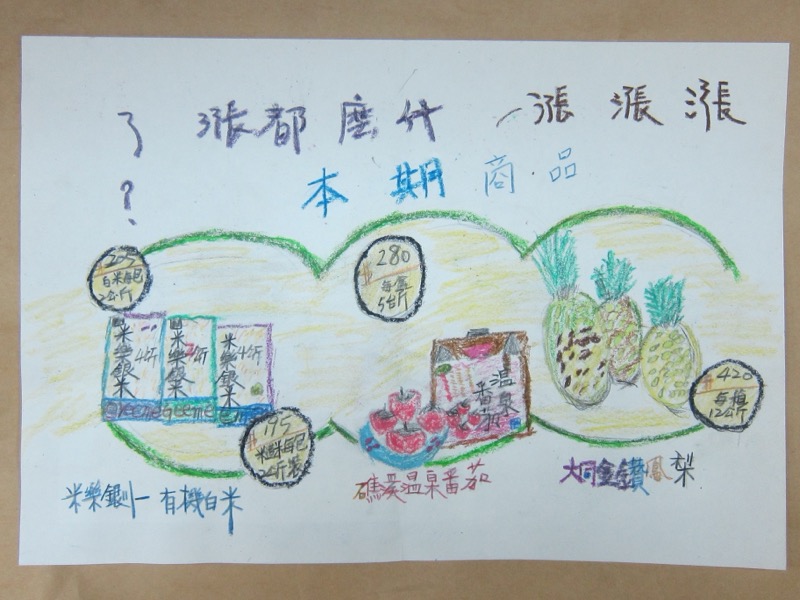 漲漲漲一什麼都漲了?
本期商品
205
白米每包
2公斤
280
每盒
5台斤
米樂銀米
米樂銀米
米樂銀米
溫泉
番茄
$420
每箱
195
米每包
2公斤裝
米樂銀川一有機白米
礁溪溫泉番茄
大同金鑽鳳梨